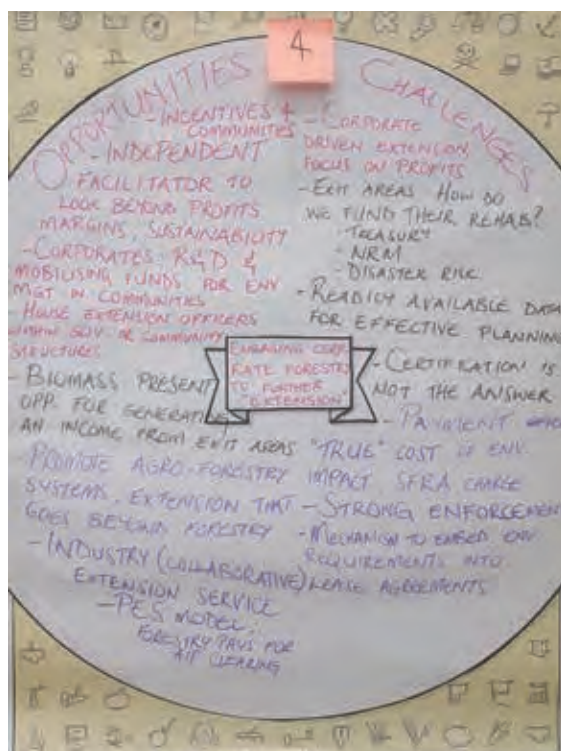 4
OPPORTUNITIES
- INCENTIVES &
COMMUNITIES
- INDEPENDENT
FACILITATOR TO
LOOK BEYOND PROFITS
MARGINS, SUSTAINABILITY
- CORPORATES R&D &
MOBILISING FUNDS FOR ENV
MGT IN COMMUNITIES
- HOUSE EXTENSION OFFICERS
WITHIN GOV OR COMMUNITY
STRUCTURES
- BIOMASS PRESENT
OPP. FOR GENERATING
AN INCOME FROM EXIT AREAS
- PROMOTE AGRO-FORESTRY
SYSTEMS. EXTENSION THAT
GOES BEYOND FORESTRY
- INDUSTRY (COLLABORATIVE)
EXTENSION SERVICE
- PES MODEL:
FORESTRY PAYS FOR
CLEARING
ENGAGING CORPO-
RATE FORESTRY
TO FURTHER
"EXTENSION"
CHALLENGES
- CORPORATE
DRIVEN EXTENSION,
FOCUS ON PROFITS
- EXIT AREAS HOW DO
WE FUND THEIR REHAB?
- TREASURY
- NRM
- DISASTER RISK
- READILY AVAILABLE DATA
FOR EFFECTIVE PLANNING
- CERTIFICATION IS
NOT THE ANSWER
- PAYMENT
"TRUE" COST OF ENV.
IMPACT. SFRA CHARGE
- STRONG ENFORCEMENT
- MECHANISM TO EMBED ENV
REQUIREMENTS INTO
LEASE AGREEMENTS